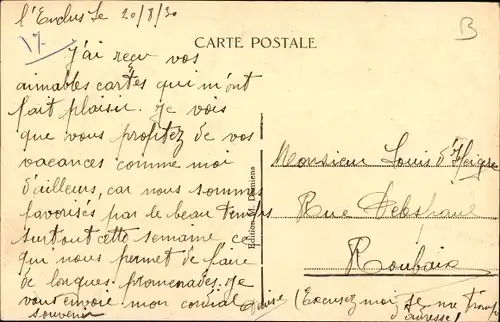 l'Enclus le 20/8/30
B
17
CARTE POSTALE
J'ai reçu vos
aimables cartes qui m'ont
fait plaisir. Je vois
que vous profitez de vos
vacances comme moi
d'ailleurs, car nous sommes
favorisés par le beau temps
surtout cette semaine ce
qui nous permet de faire
de longues promenades. Je
vous envoie mon cordial
souvenir
Monsieur Louis d'Heigre
Rue
Roubaix
(Excusez moi
d'adresse)